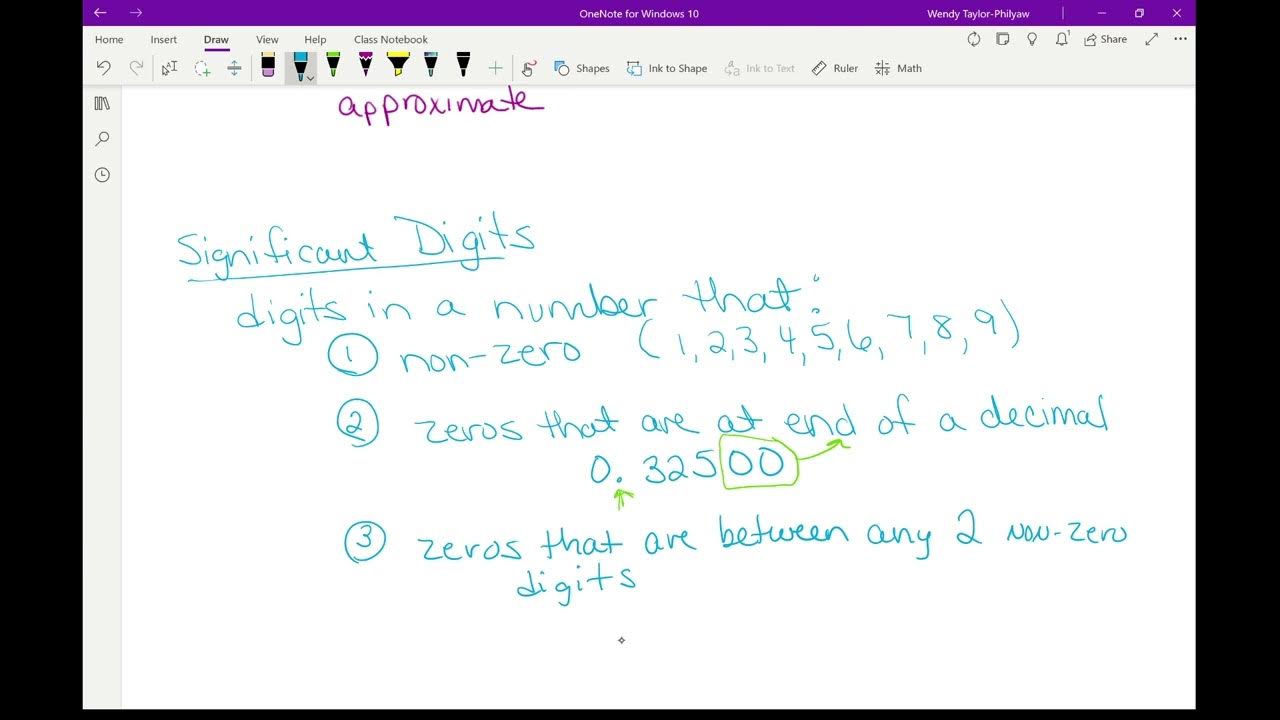 OneNote for Windows 10
Wendy Taylor-Philyaw
Home Insert Draw View Help Class Notebook
Share
Shapes Ink to Shape Ink to Text Ruler Math
approximate
Significant Digits
digits in a number that:
① non-zero (1,2,3,4,5,6,7,8,9)
② zeros that are at end of a decimal
0.32500
③ zeros that are between any 2 non-zero
digits